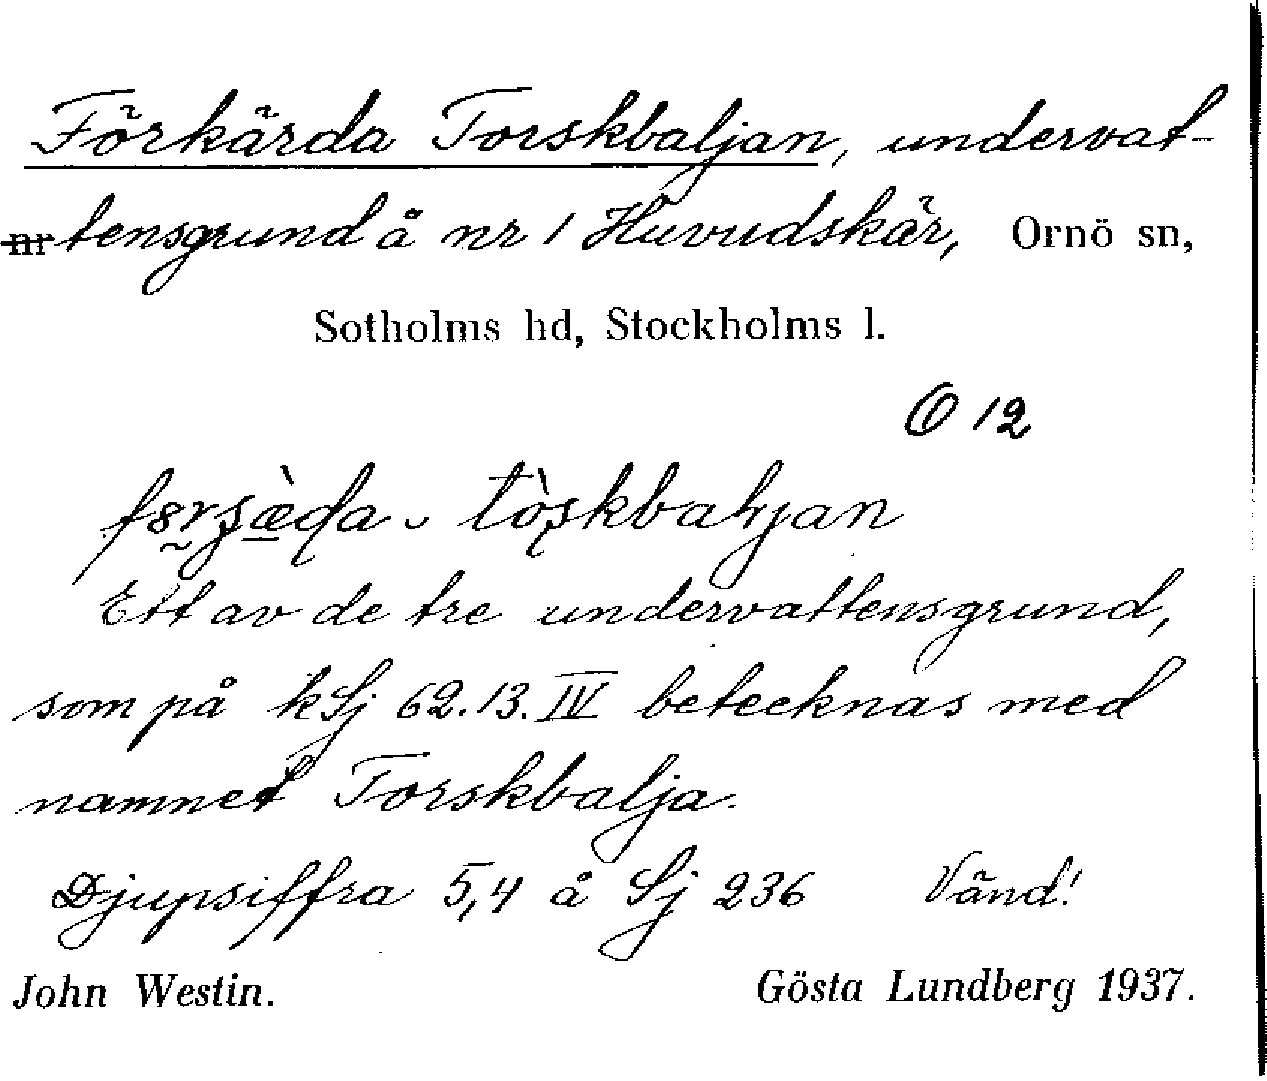 Förkärda Torskbaljan, undervat-
nr tensgrund å nr 1 Huvudskär, Ornö sn,
Sotholms hd, Stockholms l.
Ö 12
Ett av de tre undervattensgrund,
som på kSj 62.13.IV betecknas med
namnet Torskbalja.
Djupsiffra 5,4 å Sj 236 Vänd!
John Westin. Gösta Lundberg 1937.